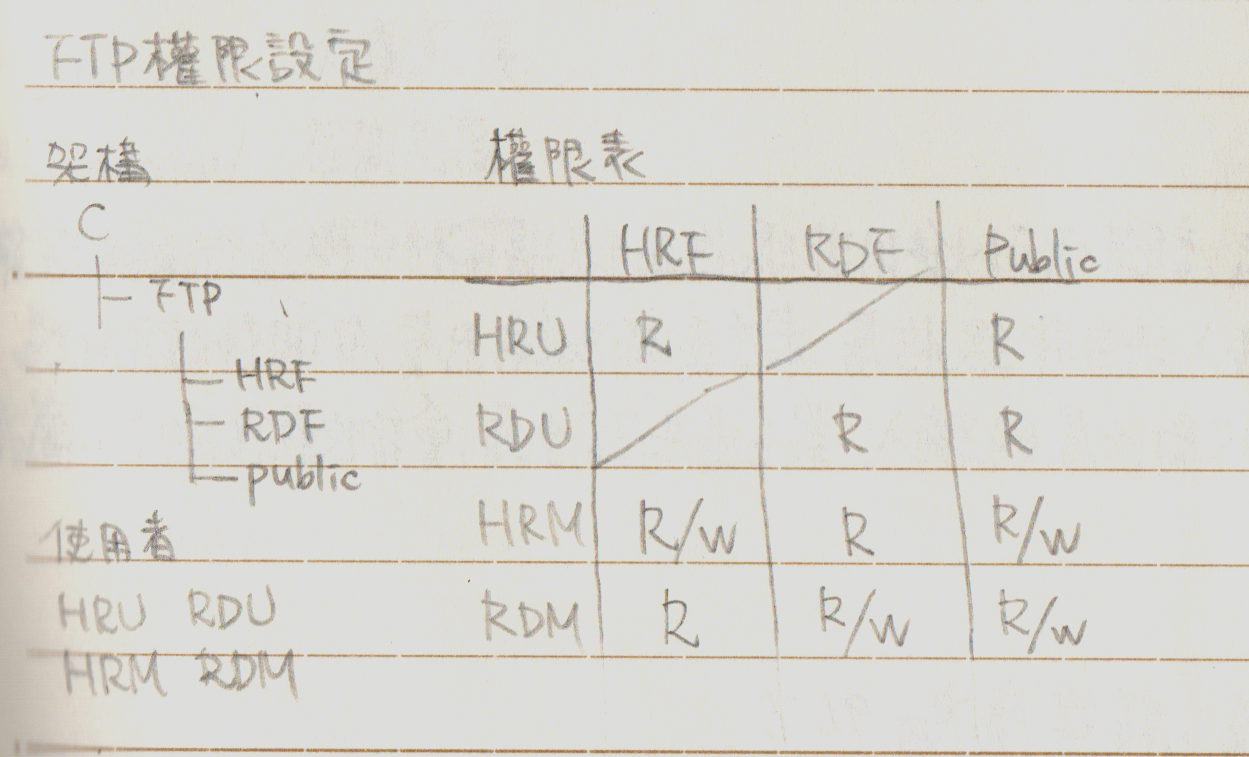 FTP權限設定
架構
C
FTP
HRF
RDF
public
使用者
HRU RDU
HRM RDM
權限表
HRF RDF Public
HRU R R
RDU R R
HRM R/W R R/W
RDM R R/W R/W